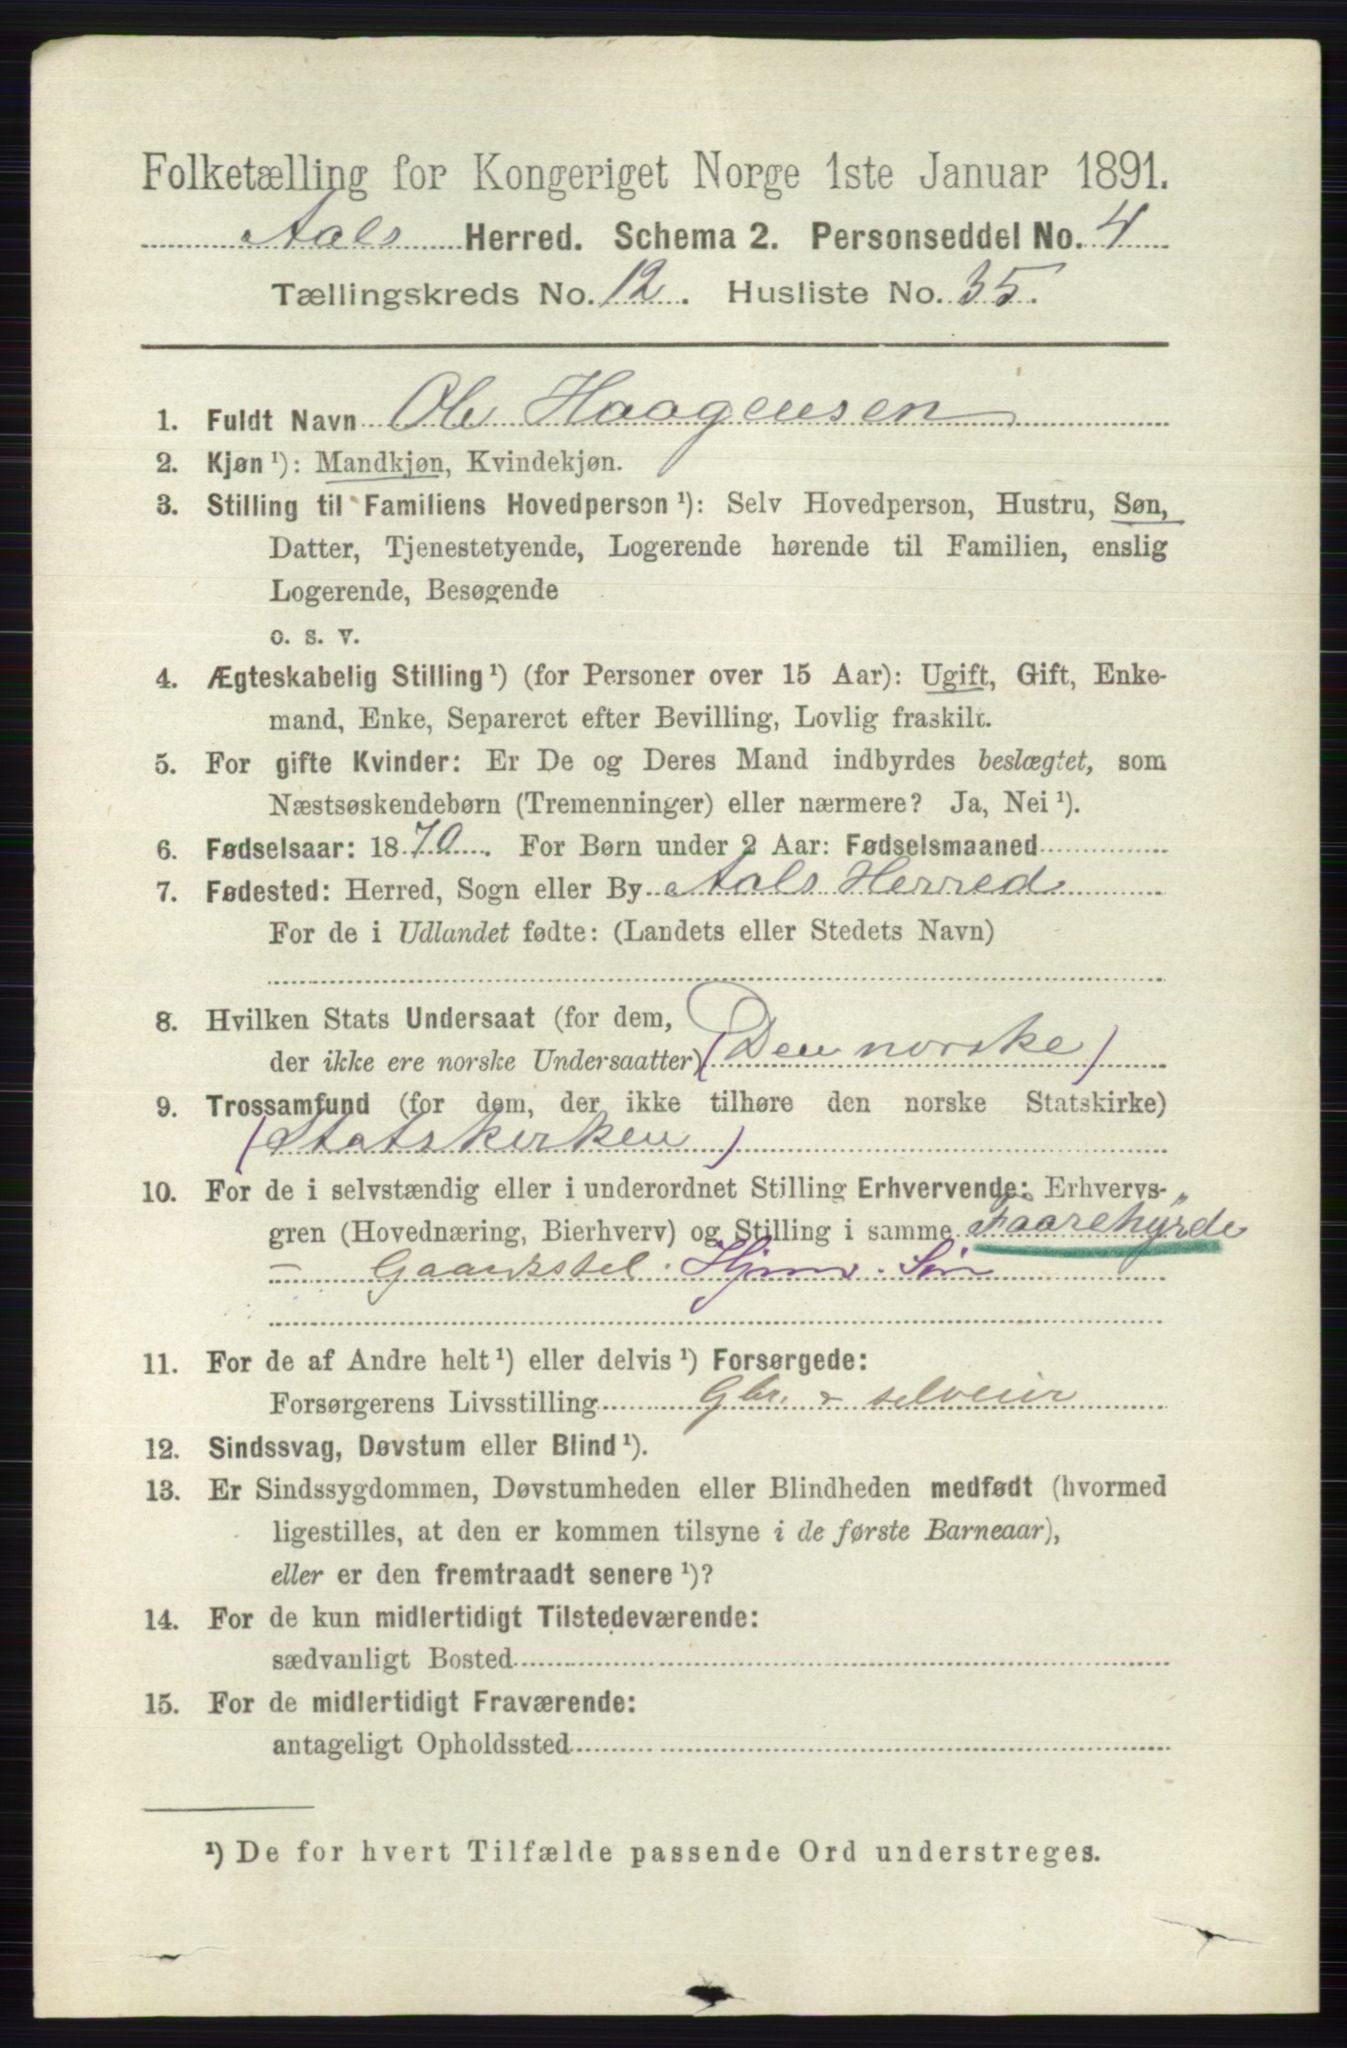 Folketælling for Kongeriget Norge 1ste Januar 1891.
Aals Herred. Schema 2. Personseddel No. 4
Tællingskreds No. 12. Husliste No. 35.
1. Fuldt Navn Ole Haagensen
2. Kjøn ¹): Mandkjøn, Kvindekjøn.
3. Stilling til Familiens Hovedperson ¹): Selv Hovedperson, Hustru, Søn,
Datter, Tjenestetyende, Logerende hørende til Familien, enslig
Logerende, Besøgende
o. s. v.
4. Ægteskabelig Stilling ¹) (for Personer over 15 Aar): Ugift, Gift, Enke-
mand, Enke, Separeret efter Bevilling, Lovlig fraskilt.
5. For gifte Kvinder: Er De og Deres Mand indbyrdes beslægtet, som
Næstsøskendebørn (Tremenninger) eller nærmere? Ja, Nei ¹).
6. Fødselsaar: 1870. For Børn under 2 Aar: Fødselsmaaned
7. Fødested: Herred, Sogn eller By Aals Herred
For de i Udlandet fødte: (Landets eller Stedets Navn)
8. Hvilken Stats Undersaat (for dem,
der ikke ere norske Undersaatter) (Den norske)
9. Trossamfund (for dem, der ikke tilhøre den norske Statskirke)
(Statskirken)
10. For de i selvstændig eller i underordnet Stilling Erhvervende: Erhvervs-
gren (Hovednæring, Bierhverv) og Stilling i samme Faarehyrde
– Gaardsstel. Hjmv. Søn
11. For de af Andre helt ¹) eller delvis ¹) Forsørgede:
Forsørgerens Livsstilling Gbr. & selveier
12. Sindssvag, Døvstum eller Blind ¹).
13. Er Sindssygdommen, Døvstumheden eller Blindheden medfødt (hvormed
ligestilles, at den er kommen tilsyne i de første Barneaar),
eller er den fremtraadt senere ¹)?
14. For de kun midlertidigt Tilstedeværende:
sædvanligt Bosted
15. For de midlertidigt Fraværende:
antageligt Opholdssted
¹) De for hvert Tilfælde passende Ord understreges.